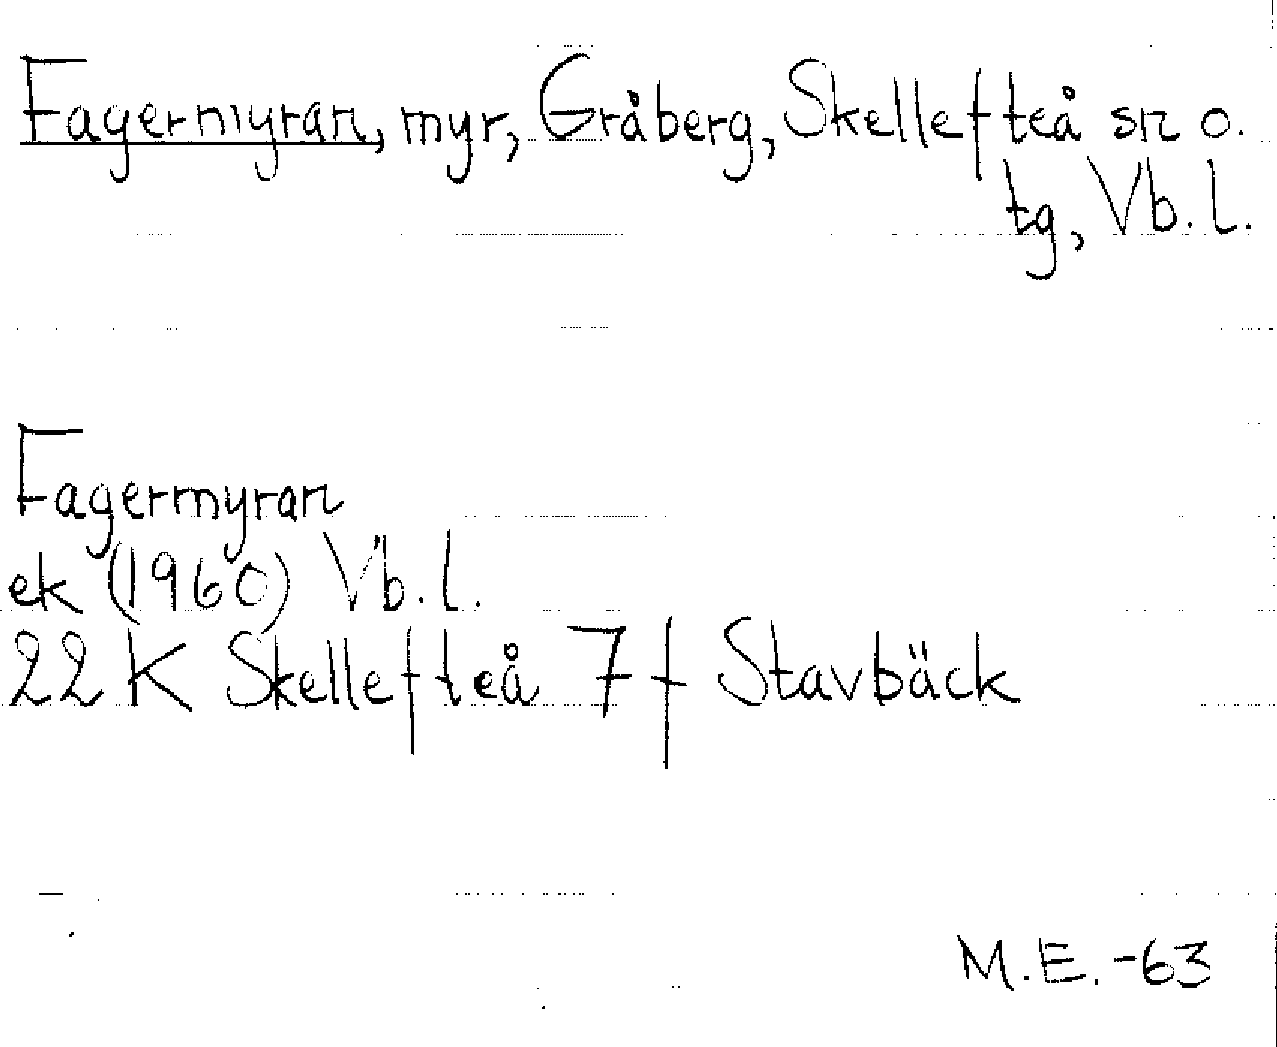 Fagermyran, myr, Gråberg, Skellefteå sn o.
tg, Vb. l.
Fagermyran
ek (1960) Vb. l.
22 K Skellefteå 7 f Stavbäck
M.E. -63